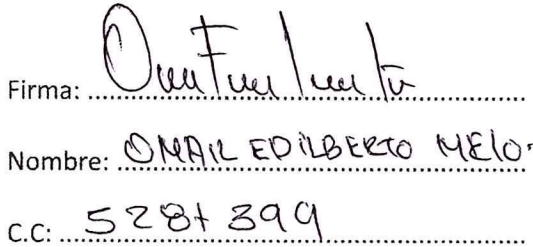 Firma:
Nombre: OMAIR EDILBERTO MELO.
C.C: 5287 399